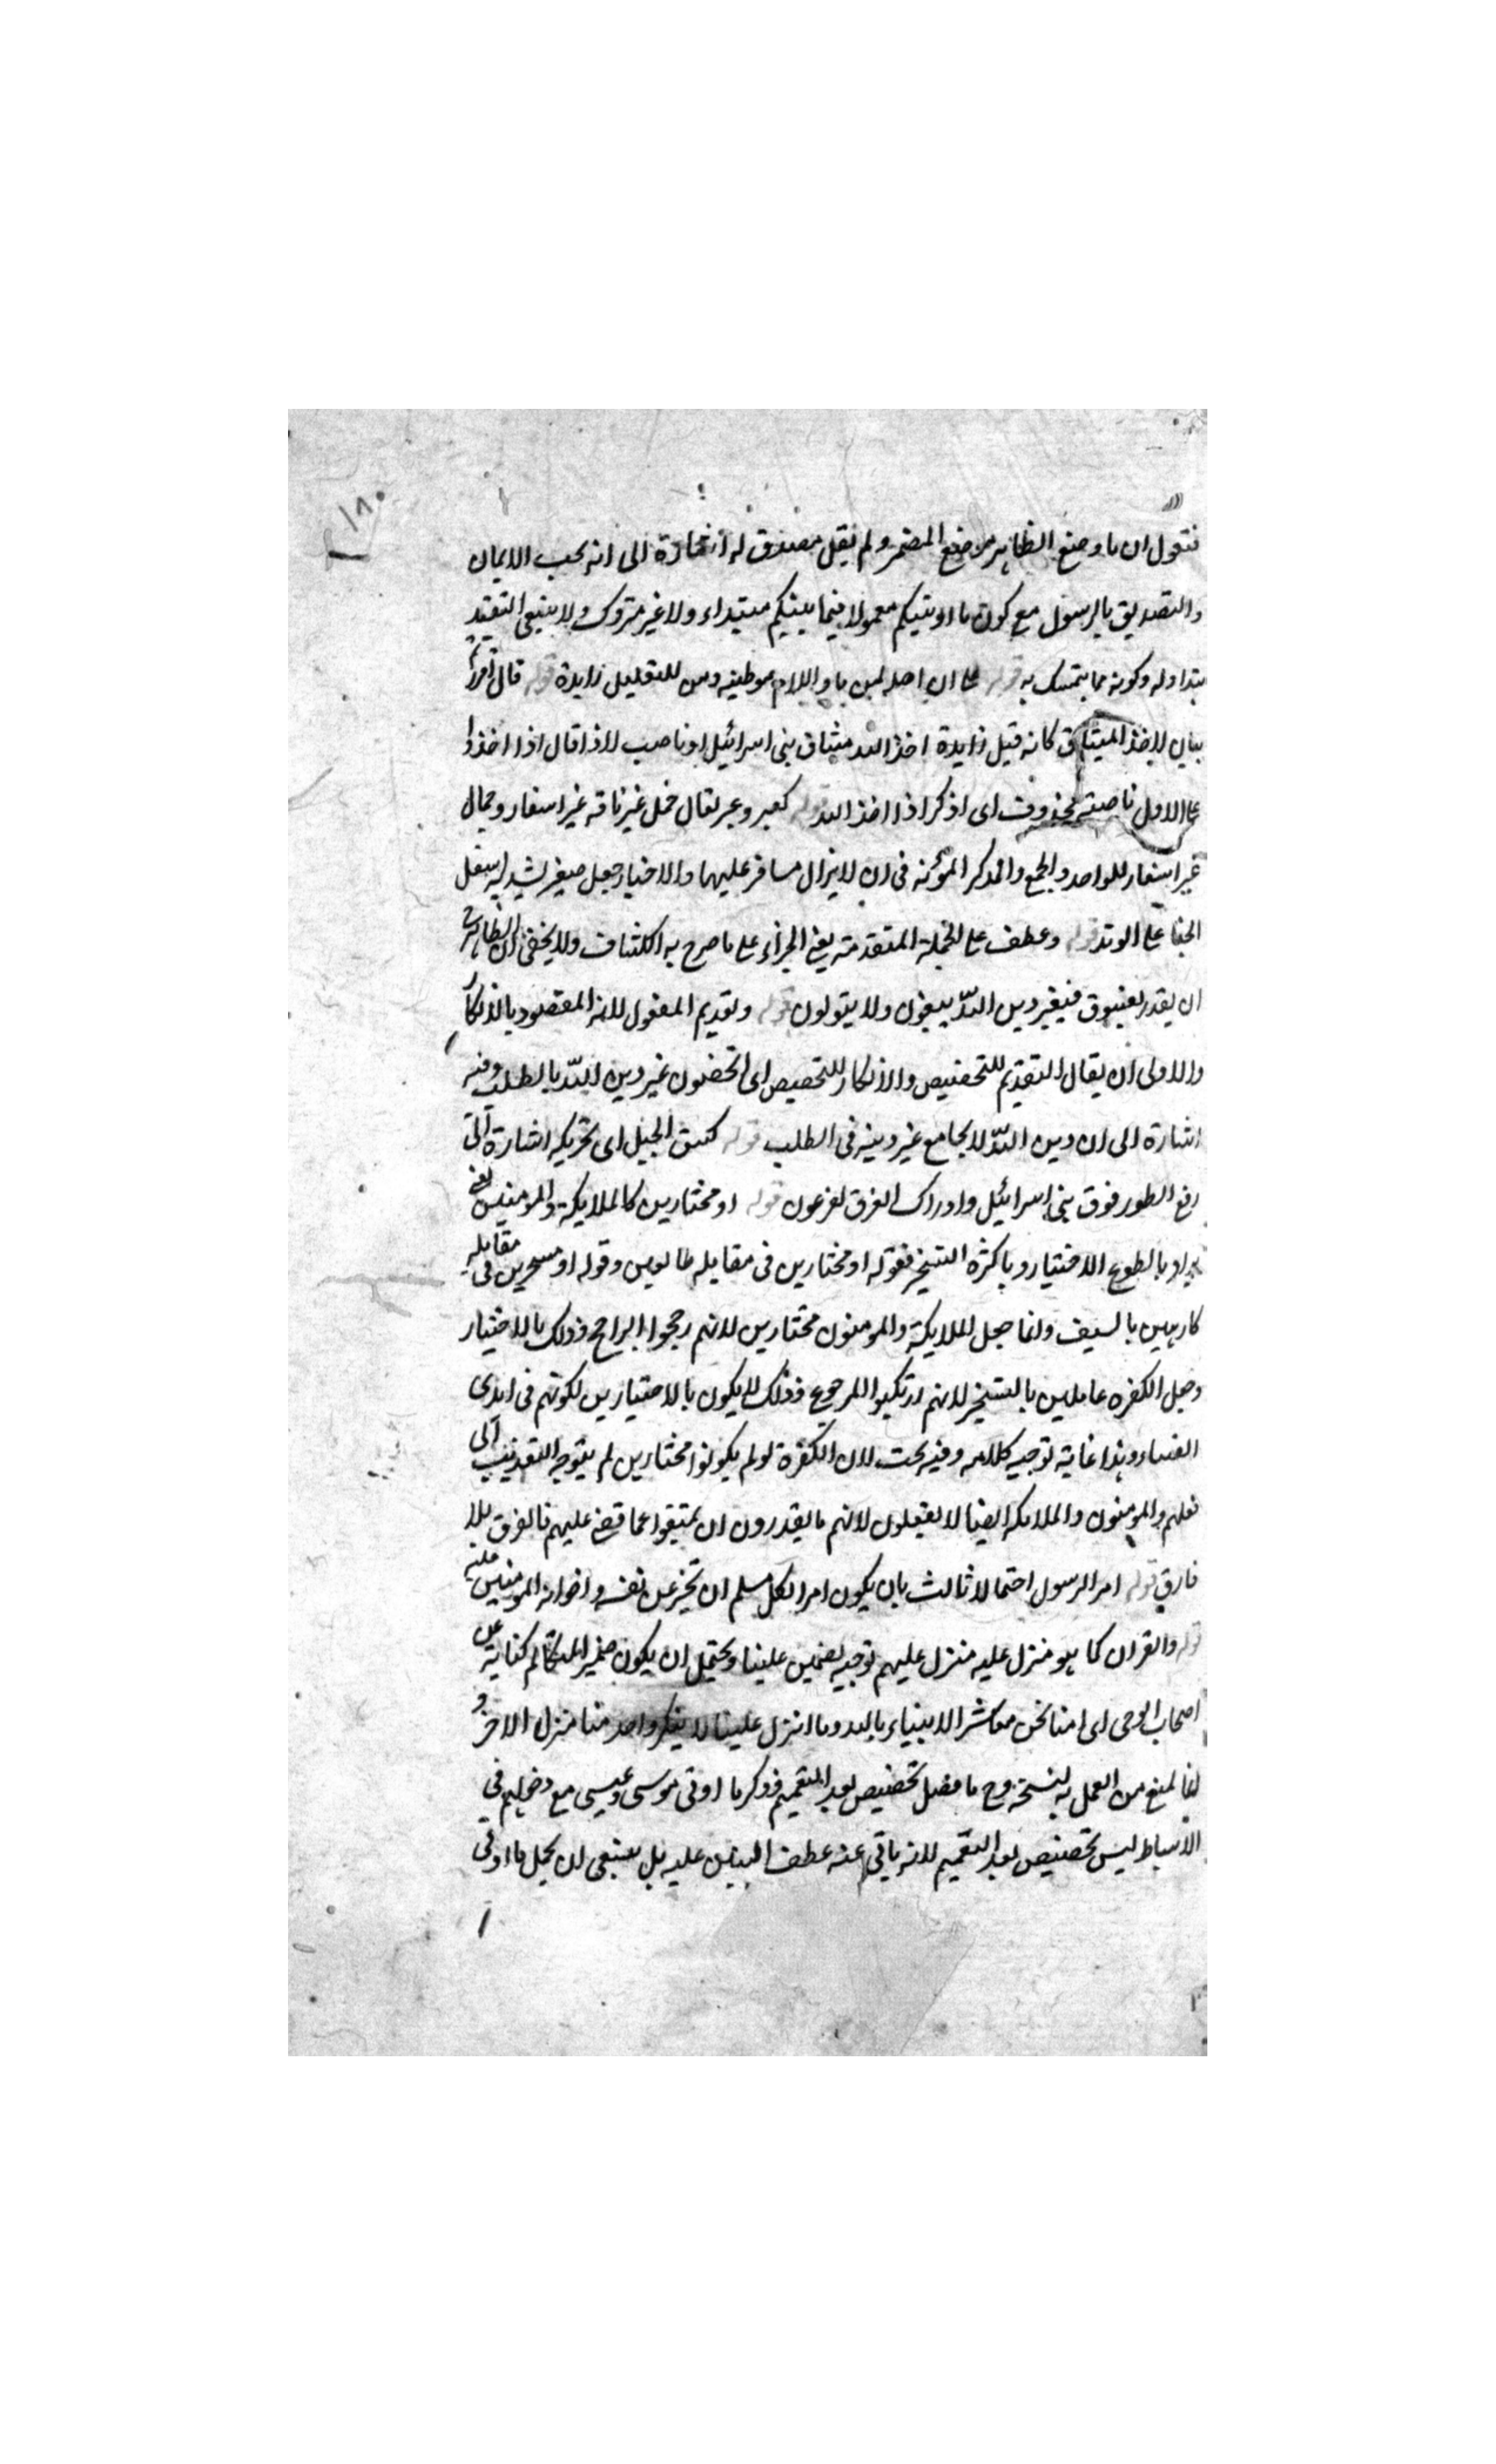 ١٨٠
فنقول ان ما وضع الظاهر موضع المضمر ولم يقل مصدق له اشارة الى انه يجب الايمان
والتصديق بالرسول مع كون ما اوتيتكم معمولا فيما بينكم مبتداء ولا غير متروك ولا ينبغي التقييد
بتداوله وكونه مما يتمسك به قوله على ان اصله لمن ما واللام موطئه ومن للتقليل زايدة قوله قال أقررتم
بيان لاخذ الميثاق كانه قيل زايدة اخذ الله ميثاق بنى اسرائيل او ناصب لاذ اقال اذا اخذوا
على الاول ناصبه محذوف اى اذكر اذا اخذ الله قوله كعبر وعبر يقال جمل غير ناقه غير اسفار وجمال
غير اسفار للواحد والجمع والمذكر المؤنه فى ان لا يزال مسافر عليها والاختيار جعل صيغر يشد به اسفل
الخبا على الوتد قوله وعطف على الجملة المتقدمة يعنى الجزاء على ما صرح به الكشاف ولا يخفى ان الظاهر
ان يقدر يعنيوق فيغير دين اللّه يبغون ولا يتولون قوله وتقديم المفعول لانه المقصود بالانكار
والاولى ان يقال التقديم للتخصيص والانكار للتخصيص اى اتخصلون غير دين اللّه بالطلب وفيه
اشارة الى ان دين اللّه لا يجامع غير دينه فى الطلب قوله كنتق الجبل اى تحريكه اشارة الى
رفع الطور فوق بنى اسرائيل وادراك الغرق لفرعون قوله او مختارين كالملايكة والمومنين يعنى
يراد بالطوع الاختيار وبالكره التسخير فقوله او مختارين فى مقابله طايعين وقوله او مسخرين فى مقابله
كارهين بالسيف وانما جعل الملايكة والمومنون مختارين لانهم رجحوا الراجح وذلك بالاختيار
وجعل الكفره عاملين بالتسخير لانهم ارتكبوا المرجوح وذلك لا يكون بالاختيارين لكونهم فى ايدى
القضاء وهذا غاية توجيه كلامه وفيه بحث لان الكفرة لو لم يكونوا مختارين لم يتوجه التعذيب الى
فعلهم والمومنون والملايكه ايضا لا يفعلون لانهم ما يقدرون ان يمتنعوا عما قضى عليهم فالفرق بلا
فارق قوله امر الرسول احتمالا ثالث بان يكون امرا لكل مسلم ان يخبر عن نفسه واخوانه المومنين عليه
قوله والقران كما هو منزل عليه منزل عليهم توجيه لضمير علينا ويحتمل ان يكون ضمير المتكلم كناية عن
اصحاب الوحى اى امنا نحن معاشر الانبياء بالله وما انزل علينا لا ينكر واحد منا منزل الاخر و
انما لمنع من العمل به لنسخه وح ما فضل تخصيص بعد التعميم فذكر ما اوتى موسى وعيسى مع دخولهم فى
الاسباط ليس تخصيص بعد التعميم لانه ياتى عنه عطف النبين عليه بل ينبغى ان يحمل ما اوتى